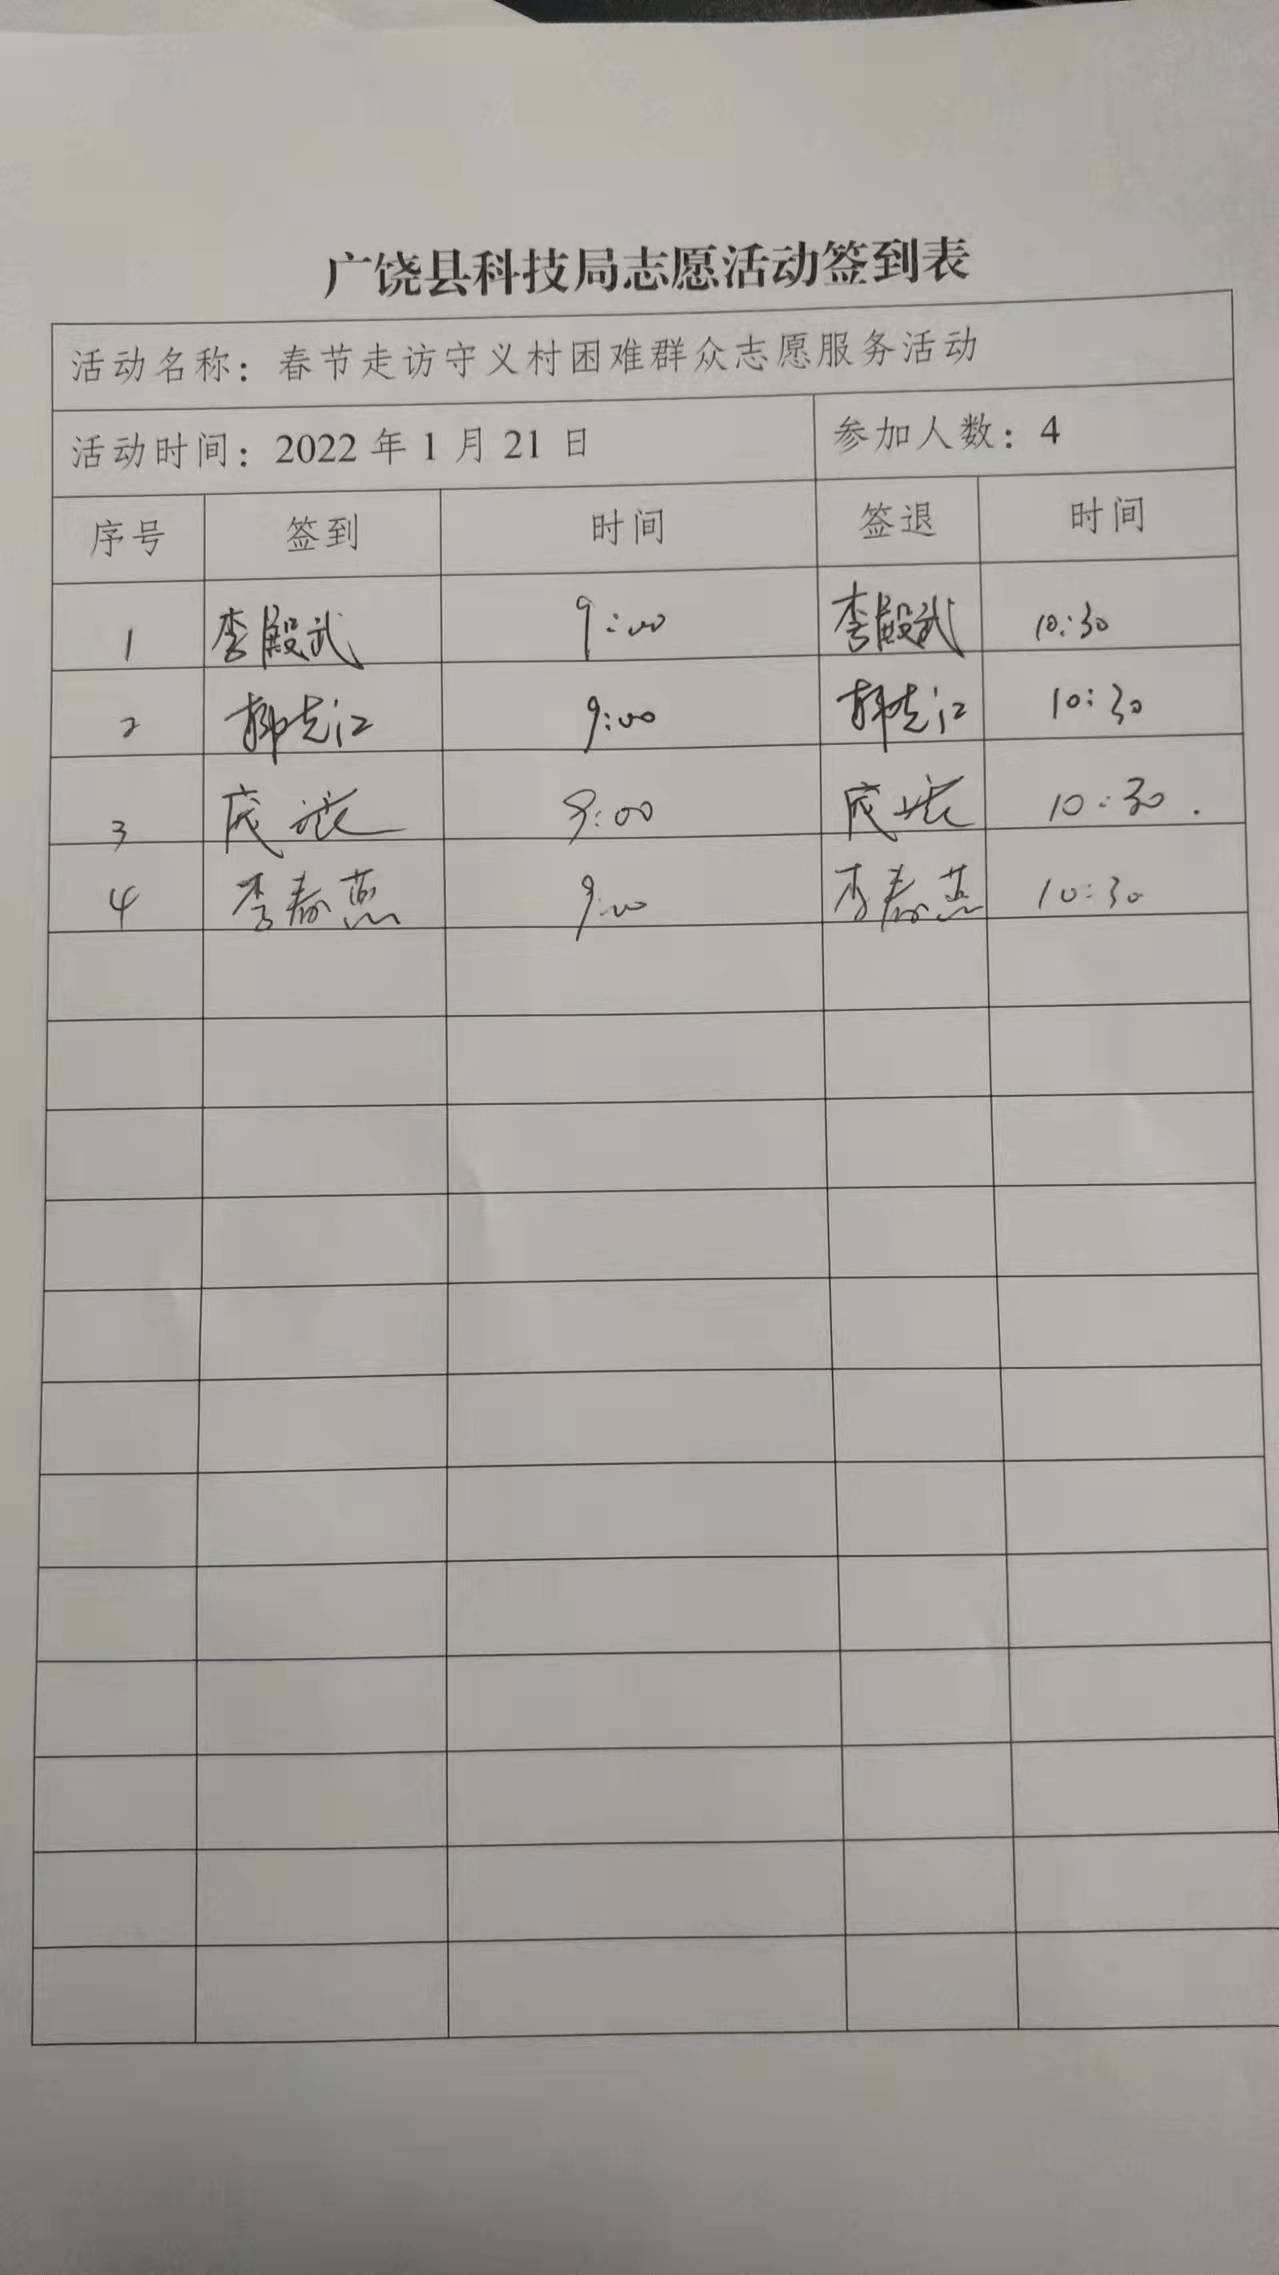 广饶县科技局志愿活动签到表
活动名称：春节走访守义村困难群众志愿服务活动
活动时间：2022 年 1 月 21 日 参加人数：4
序号 签到 时间 签退 时间
1 李殿武 9:00 李殿武 10:30
2 9:00 10:30
3 9:00 10:30.
4 李春燕 9:00 李春燕 10:30